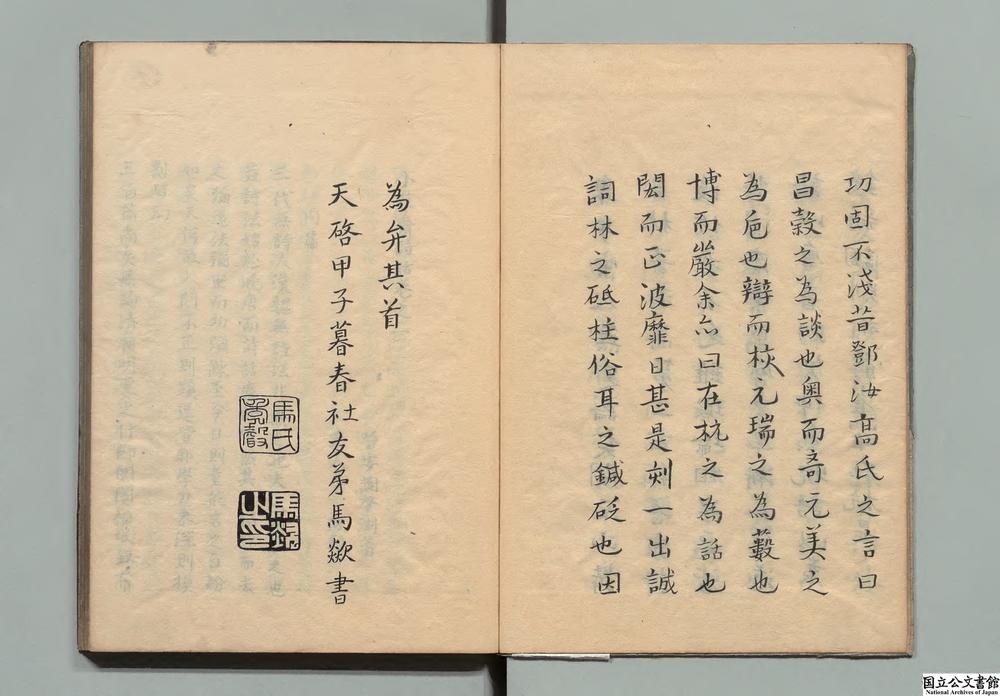 功固不淺昔鄧汝高氏之言曰
昌榖之為談也奥而奇元美之
為卮也辯而核元瑞之為藪也
博而嚴余亦曰在杭之為話也
閎而正波靡日甚是刻一出誠
詞林之砥柱俗耳之鍼砭也因
為弁其首
天啓甲子暮春社友弟馬歘書
馬氏
馬歘
之印
国立公文書館
National Archives of Japan